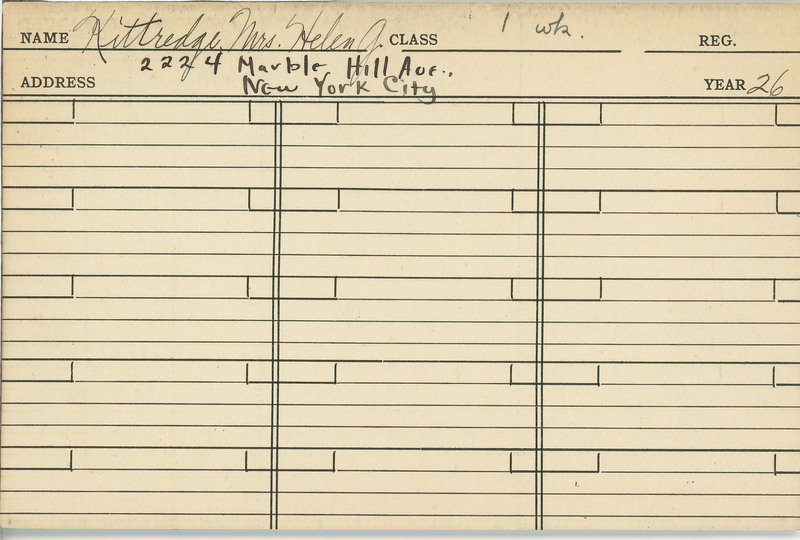 NAME Kittredge, Mrs. Helen J. CLASS 1 wk. REG.
ADDRESS 2224 Marble Hill Ave., YEAR 26
New York City